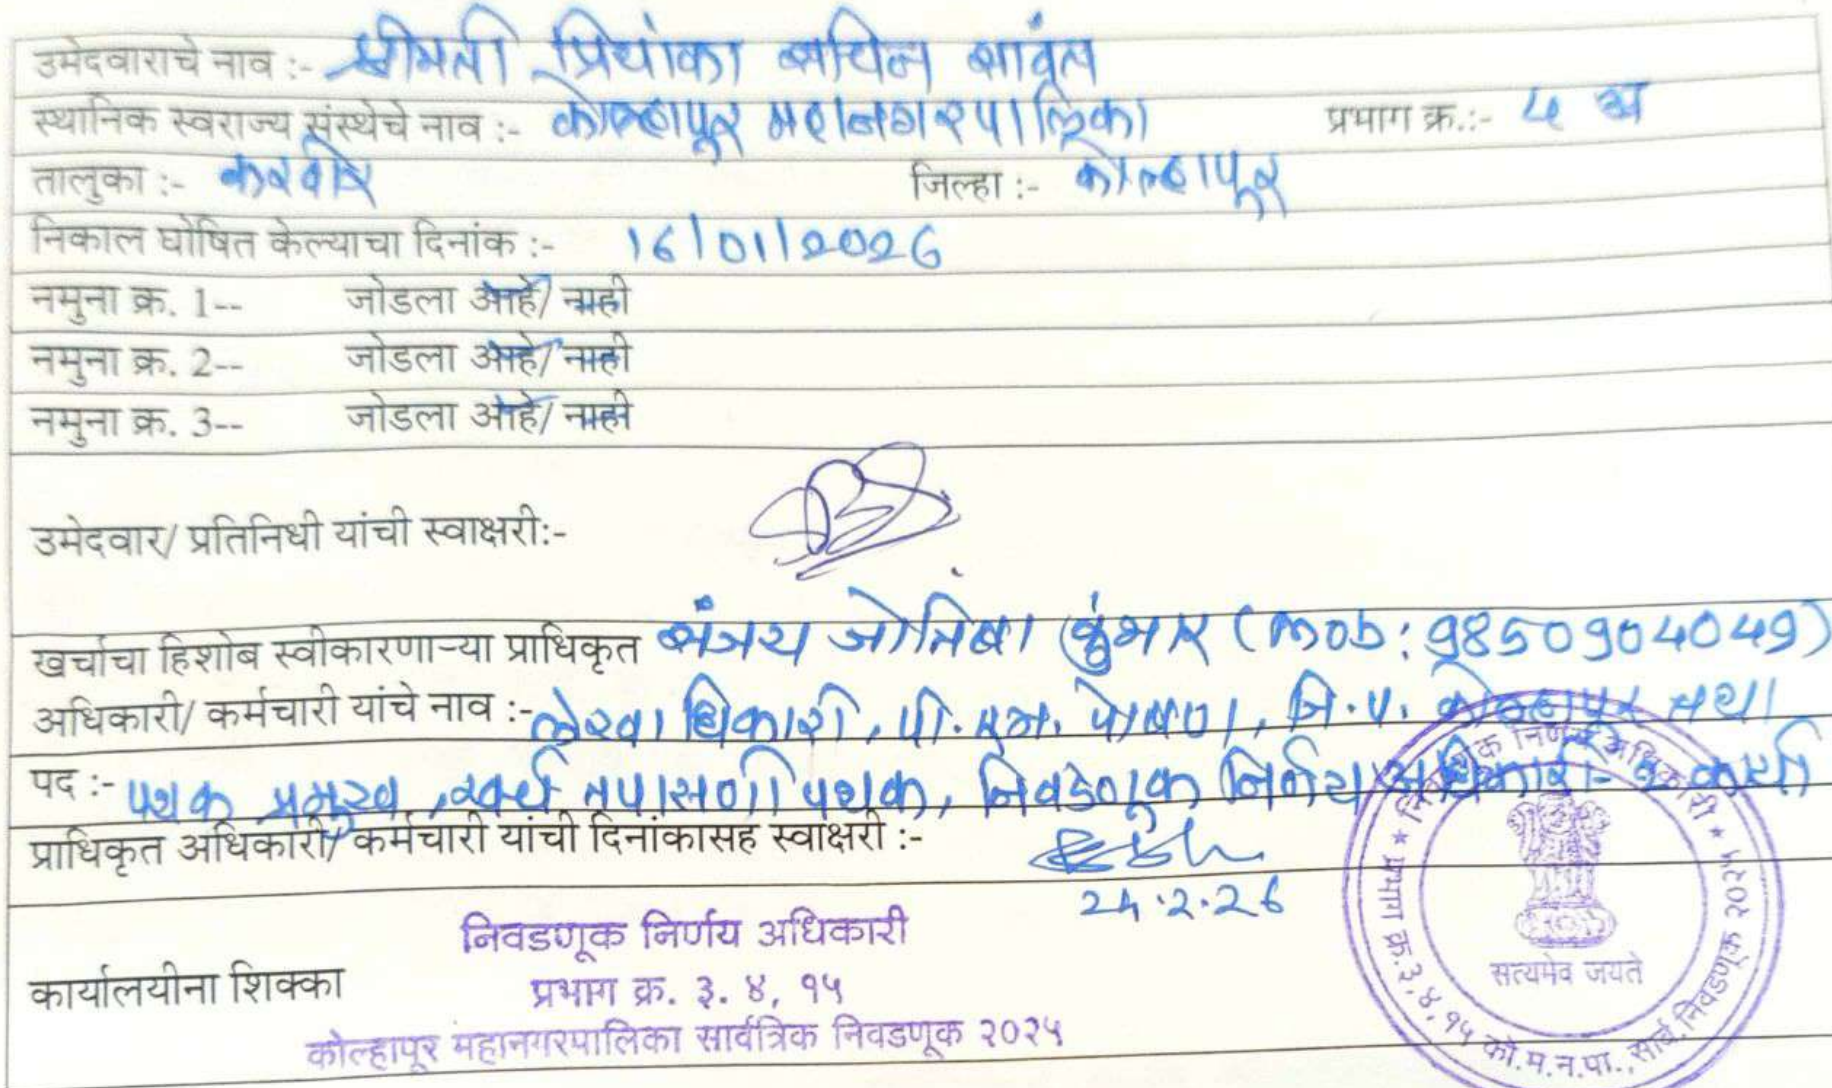 उमेदवाराचे नाव :- श्रीमती प्रियांका सचिन सावंत
स्थानिक स्वराज्य संस्थेचे नाव :- कोल्हापूर महानगरपालिका प्रभाग क्र.:- ४ अ
तालुका :- करवीर जिल्हा :- कोल्हापूर
निकाल घोषित केल्याचा दिनांक :- 16/01/2026
नमुना क्र. 1-- जोडला आहे/ नाही
नमुना क्र. 2-- जोडला आहे/ नाही
नमुना क्र. 3-- जोडला आहे/ नाही
उमेदवार/ प्रतिनिधी यांची स्वाक्षरी:-
खर्चाचा हिशोब स्वीकारणाऱ्या प्राधिकृत संजय जोतिबा कुंभार (mob: 9850904049)
अधिकारी/ कर्मचारी यांचे नाव :- लेखाधिकारी, पी. एम. पोषण, जि.प. कोल्हापूर तथा
पद :- पथक प्रमुख, खर्च तपासणी पथक, निवडणूक निर्णय अधिकारी
प्राधिकृत अधिकारी/ कर्मचारी यांची दिनांकासह स्वाक्षरी :-
24.2.26
निवडणूक निर्णय अधिकारी
कार्यालयीना शिक्का प्रभाग क्र. ३. ४, १५
कोल्हापूर महानगरपालिका सार्वत्रिक निवडणूक २०२५
निवडणूक निर्णय अधिकारी * प्रभाग क्र. ३, ४, १५ को.म.न.पा., सार्व. निवडणूक २०२५ *
सत्यमेव जयते